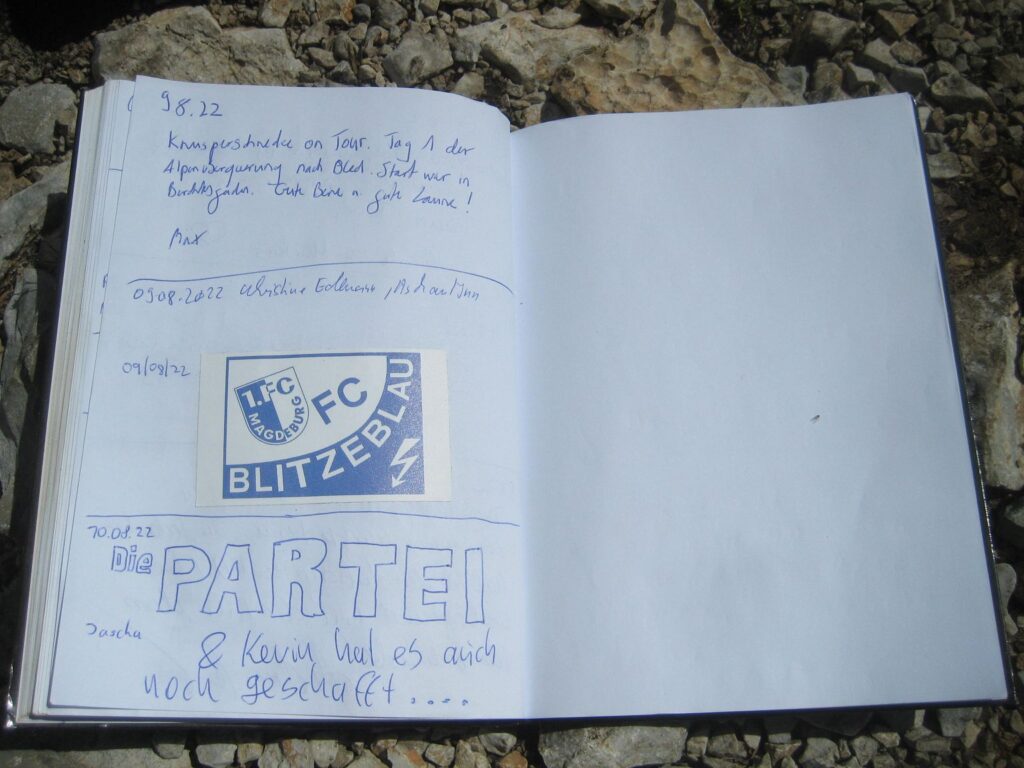 98.22
Knusperschnecke on Tour. Tag 1 der
Alpenüberquerung nach Bled. Start war in
Gute Beine u. gute Laune!
Max
09.08.2022 Christine
09/08/22
1.FC
MAGDEBURG
FC
BLITZEBLAU
10.08.22
Die PARTEI
Jascha
& Kevin hat es auch
noch geschafft....